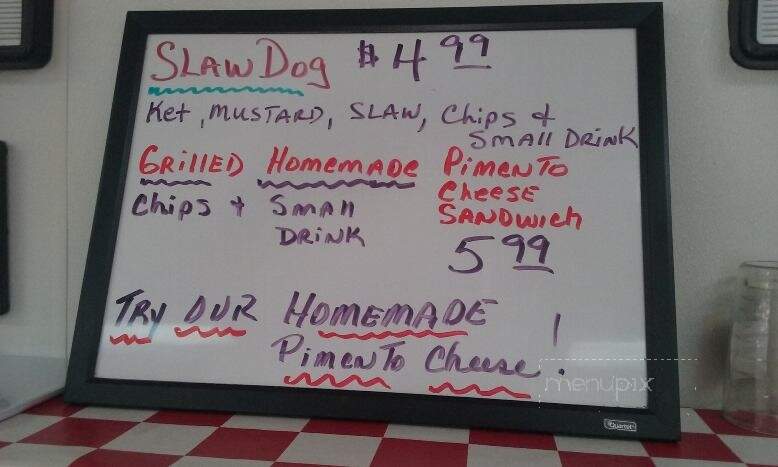 SLAW DOg $4 99
Ket, MUSTARD, SLAW, Chips &
SMAll DRiNK
GRillED HOMEMADE PiMENTO
CHEESE
SANDWich
Chips & SMAll
DRiNK
5 99
TRY OUR HOMEMADE
PiMENTO Cheese!
menupix
Quartet